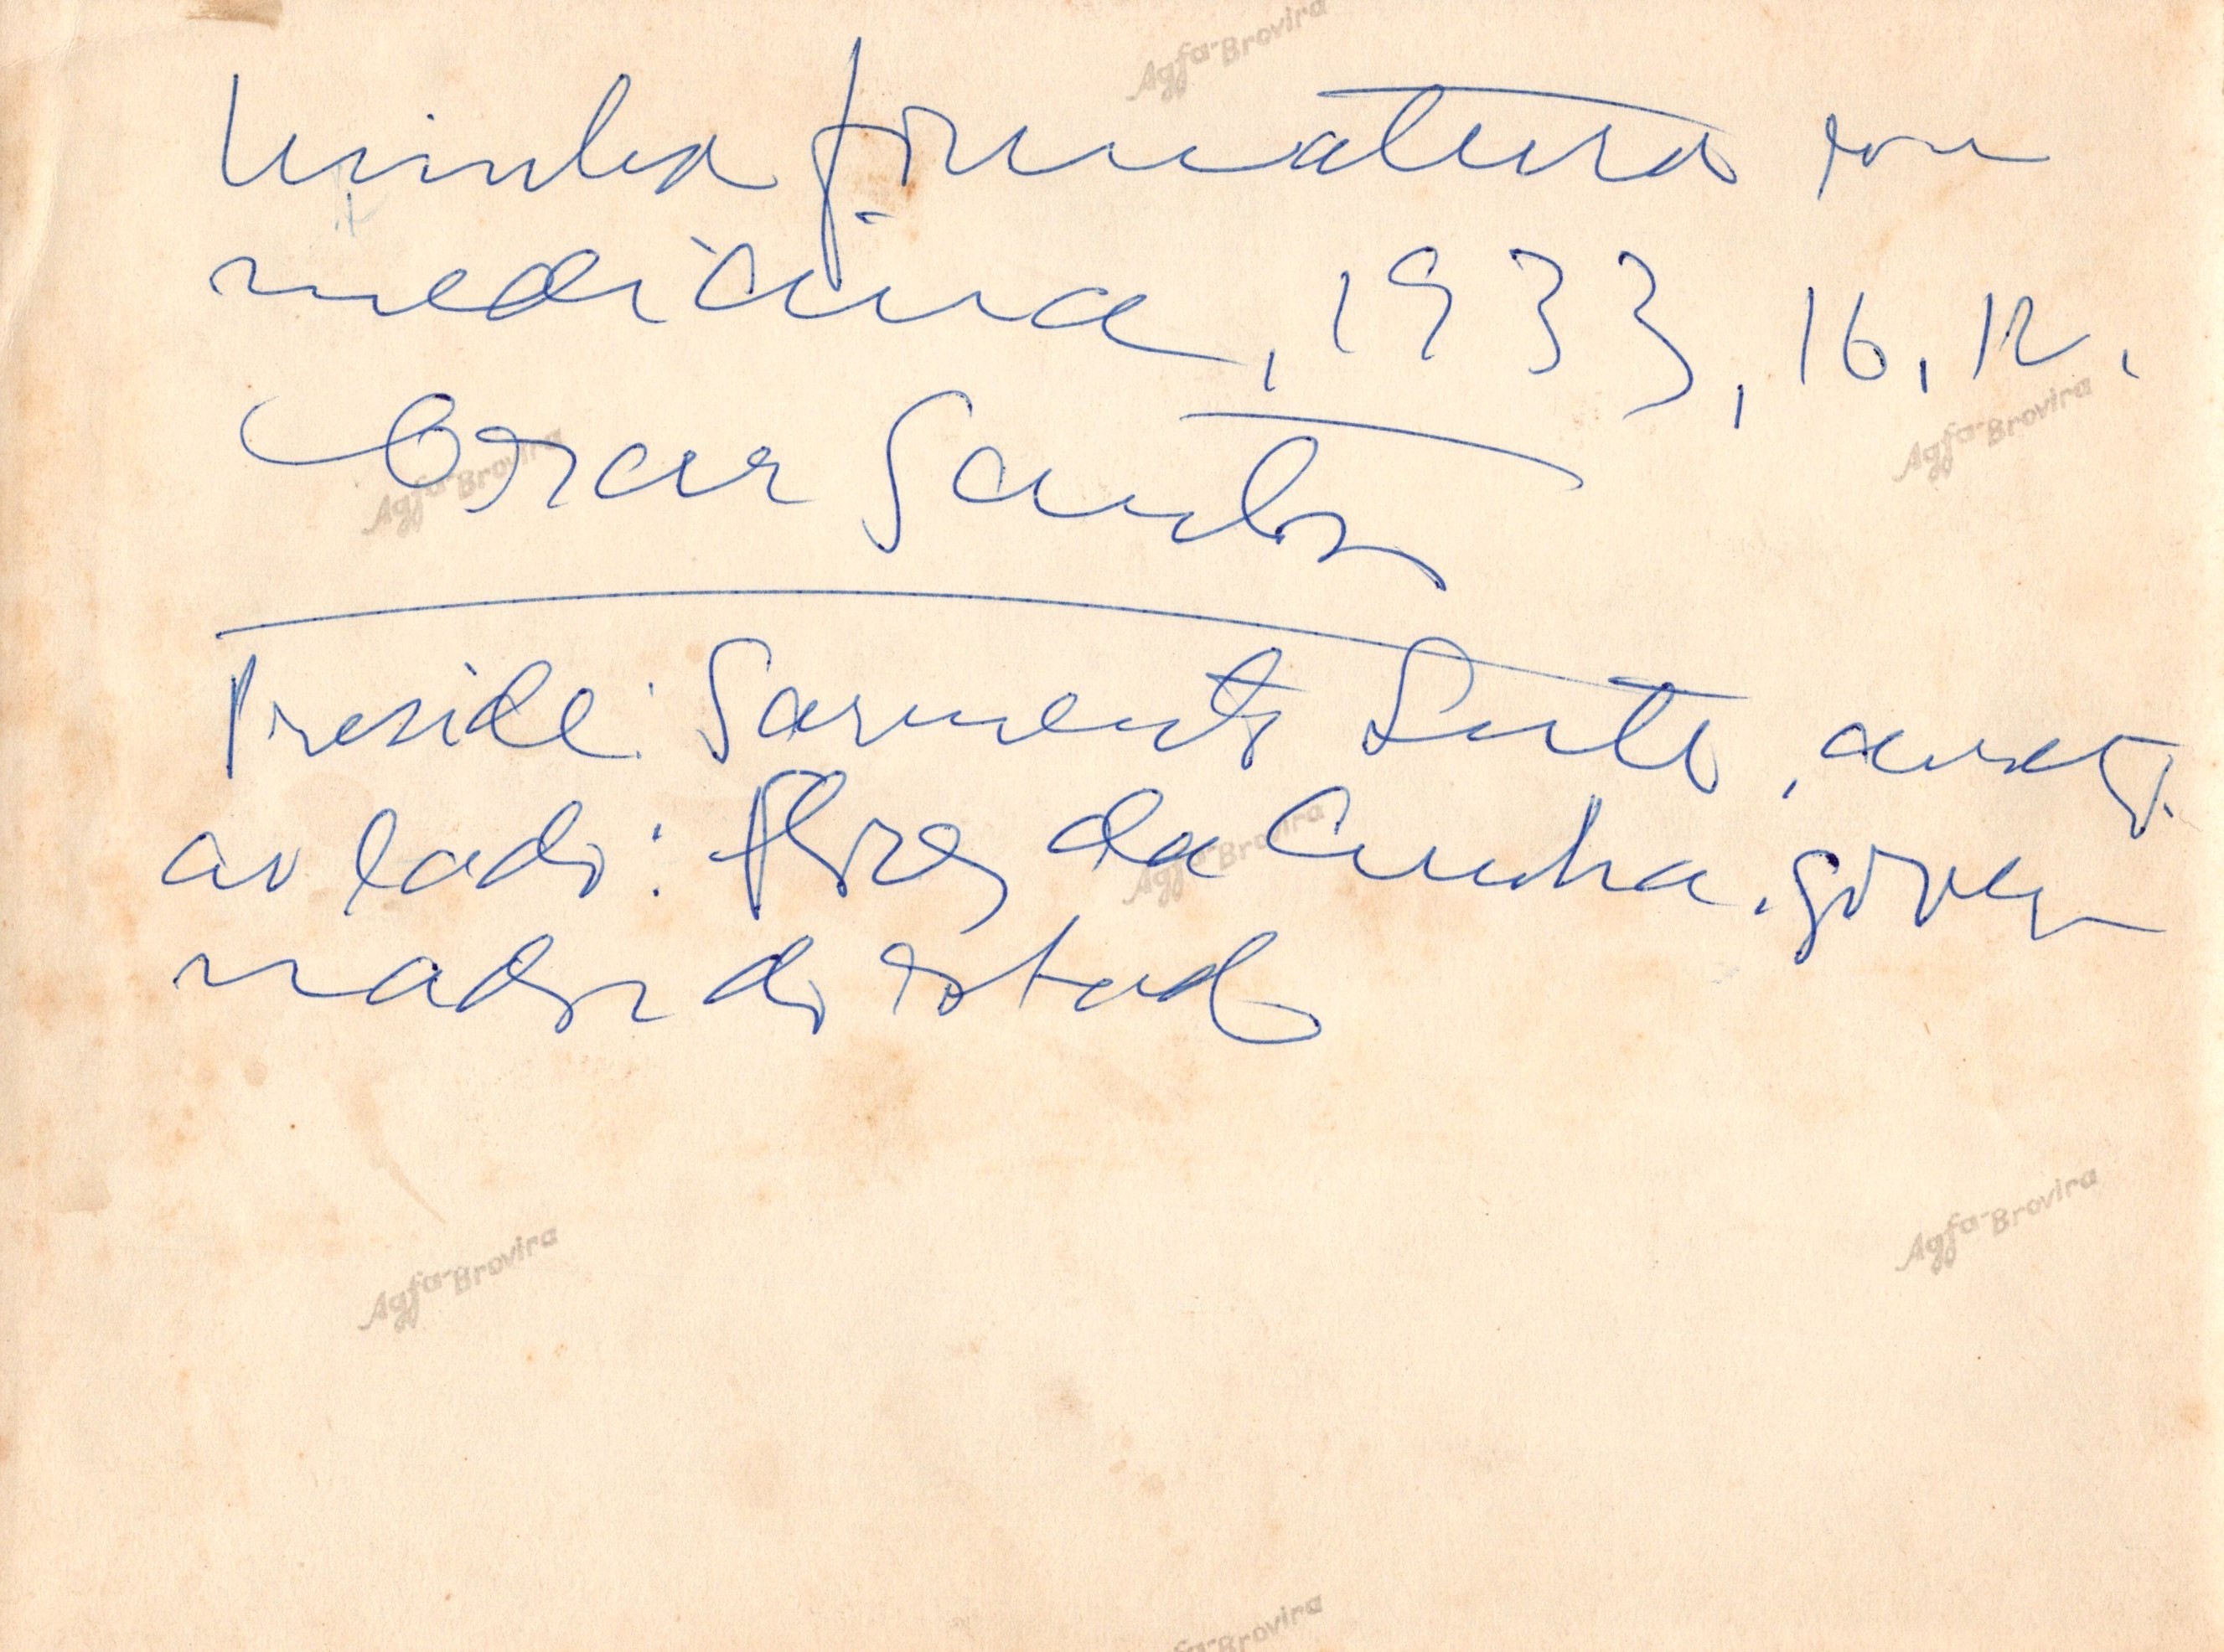 Minha formatura em
medicina, 1933, 16.12.
Oscar Santos
Preside: Sarmento Leite,
ao lado: Flores da Cunha. gover
nador do estado
Agfa-Brovira
Agfa-Brovira
Agfa-Brovira
Agfa-Brovira
Agfa-Brovira
Agfa-Brovira
Agfa-Brovira